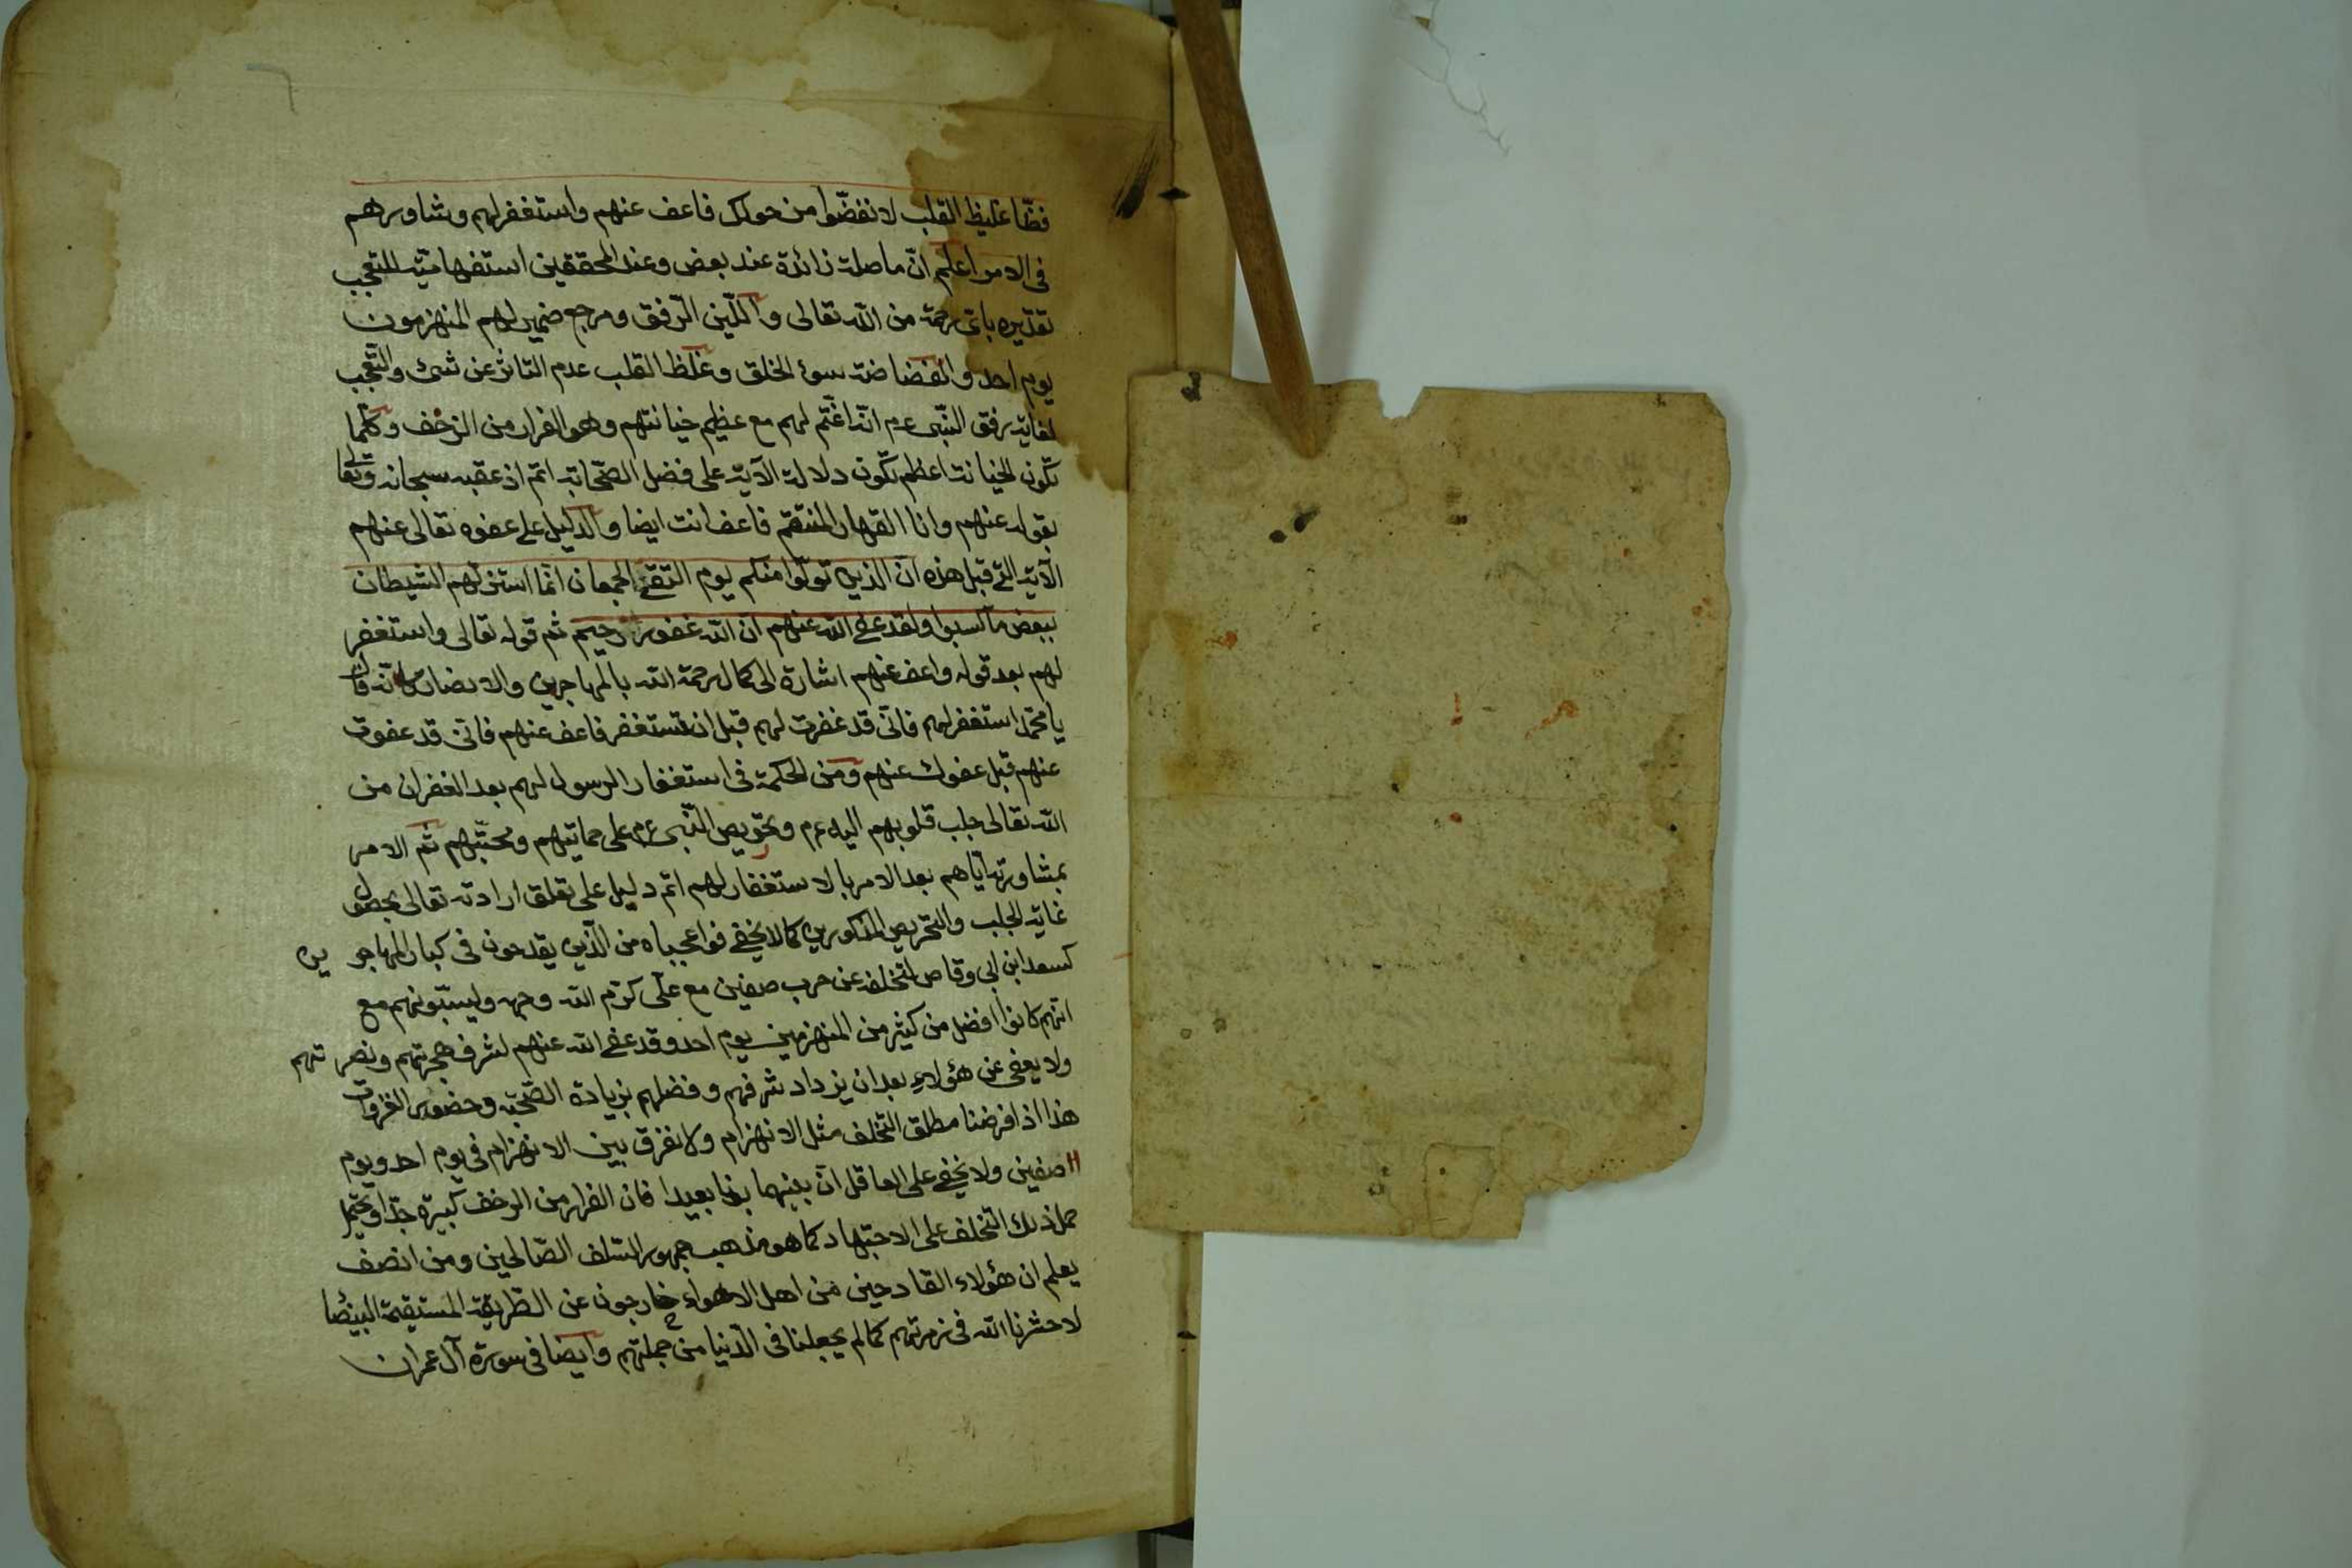 فظّا غليظ القلب لانفضّوا من حولك فاعف عنهم واستغفر لهم وشاورهم
فى الامر اعلم انّ ما صلة زائدة عند بعض وعند المحققين استفهاميّة للتعجب
تقديره باىّ رحمة من الله تعالى واللّين الرّفق ومرجع ضمير لهم المنهزمون
يوم احد والفضاضة سوء الخلق وغلظ القلب عدم التاثر عن شئ والتّعجب
لغاية رفق النّبى عم انّه اغتّم لهم مع عظيم خيانتهم وهو الفرار من الزحف وكلّما
تكون الخيانة اعظم تكون دلالة الآية على فضل الصّحابة اتم اذ عقبه سبحانه وتعالى
بقوله عنهم وانا القهار المنتقم فاعف انت ايضا والدليل على عفوه تعالى عنهم
الآية التى قبل هذه ان الذين تولّوا منكم يوم التقى الجمعان انّما استزلّهم الشيطان
ببعض ما كسبوا ولقد عفى الله عنهم ان الله غفور رحيم ثم قوله تعالى واستغفر
لهم بعد قوله واعف عنهم اشارة الى كمال رحمة الله بالمهاجرين والانصار كانّه قال
يا محمّد استغفر لهم فانّى قد غفرت لهم قبل ان تستغفر فاعف عنهم فانّى قد عفوت
عنهم قبل عفوك عنهم ومن الحكمة فى استغفار الرسول لهم بعد الغفران من
الله تعالى جلب قلوبهم اليه عم وتحريص النّبى عم على حمايتهم ومحبّتهم ثم الامر
بمشاورته ايّاهم بعد الامر بالاستغفار لهم اتم دليل على تعلق ارادته تعالى بحصول
غاية الجلب والتحريص المذكورين كما لا يخفى فواعجباه من الّذين يقدحون فى كبار المهاجرين
كسعد ابن ابى وقاص لتخلفه عن حرب صفين مع علّى كرّم الله وجهه وليسبّونهم مع
انّهم كانوا افضل من كثير من المنهزمين يوم احد وقد عفى الله عنهم لشرف هجرتهم ونصرتهم
ولا يعفى عن هؤلاء بعد ان يزداد شرفهم وفضلهم بزيادة الصّحبة وحضور الغزوات
هذا اذا فرضنا مطلق التخلف مثل الانهزام ولا نفرق بين الانهزام فى يوم احد ويوم
صفين ولا يخفى على العاقل انّ بينهما بونا بعيدا فان الفرار من الزحف كبيرة جدّا ويحتمل
حمل ذلك التخلف على الاجتهاد كما هو مذهب جمهور السّلف الصّالحين ومن انصف
يعلم ان هؤلاء القادحين من اهل الاهواء خارجون عن الطريقة المستقيمة البيضا
لا حشرنا الله فى زمرتهم كما لم يجعلنا فى الدّنيا من جملتهم وايضا فى سورة آل عمران